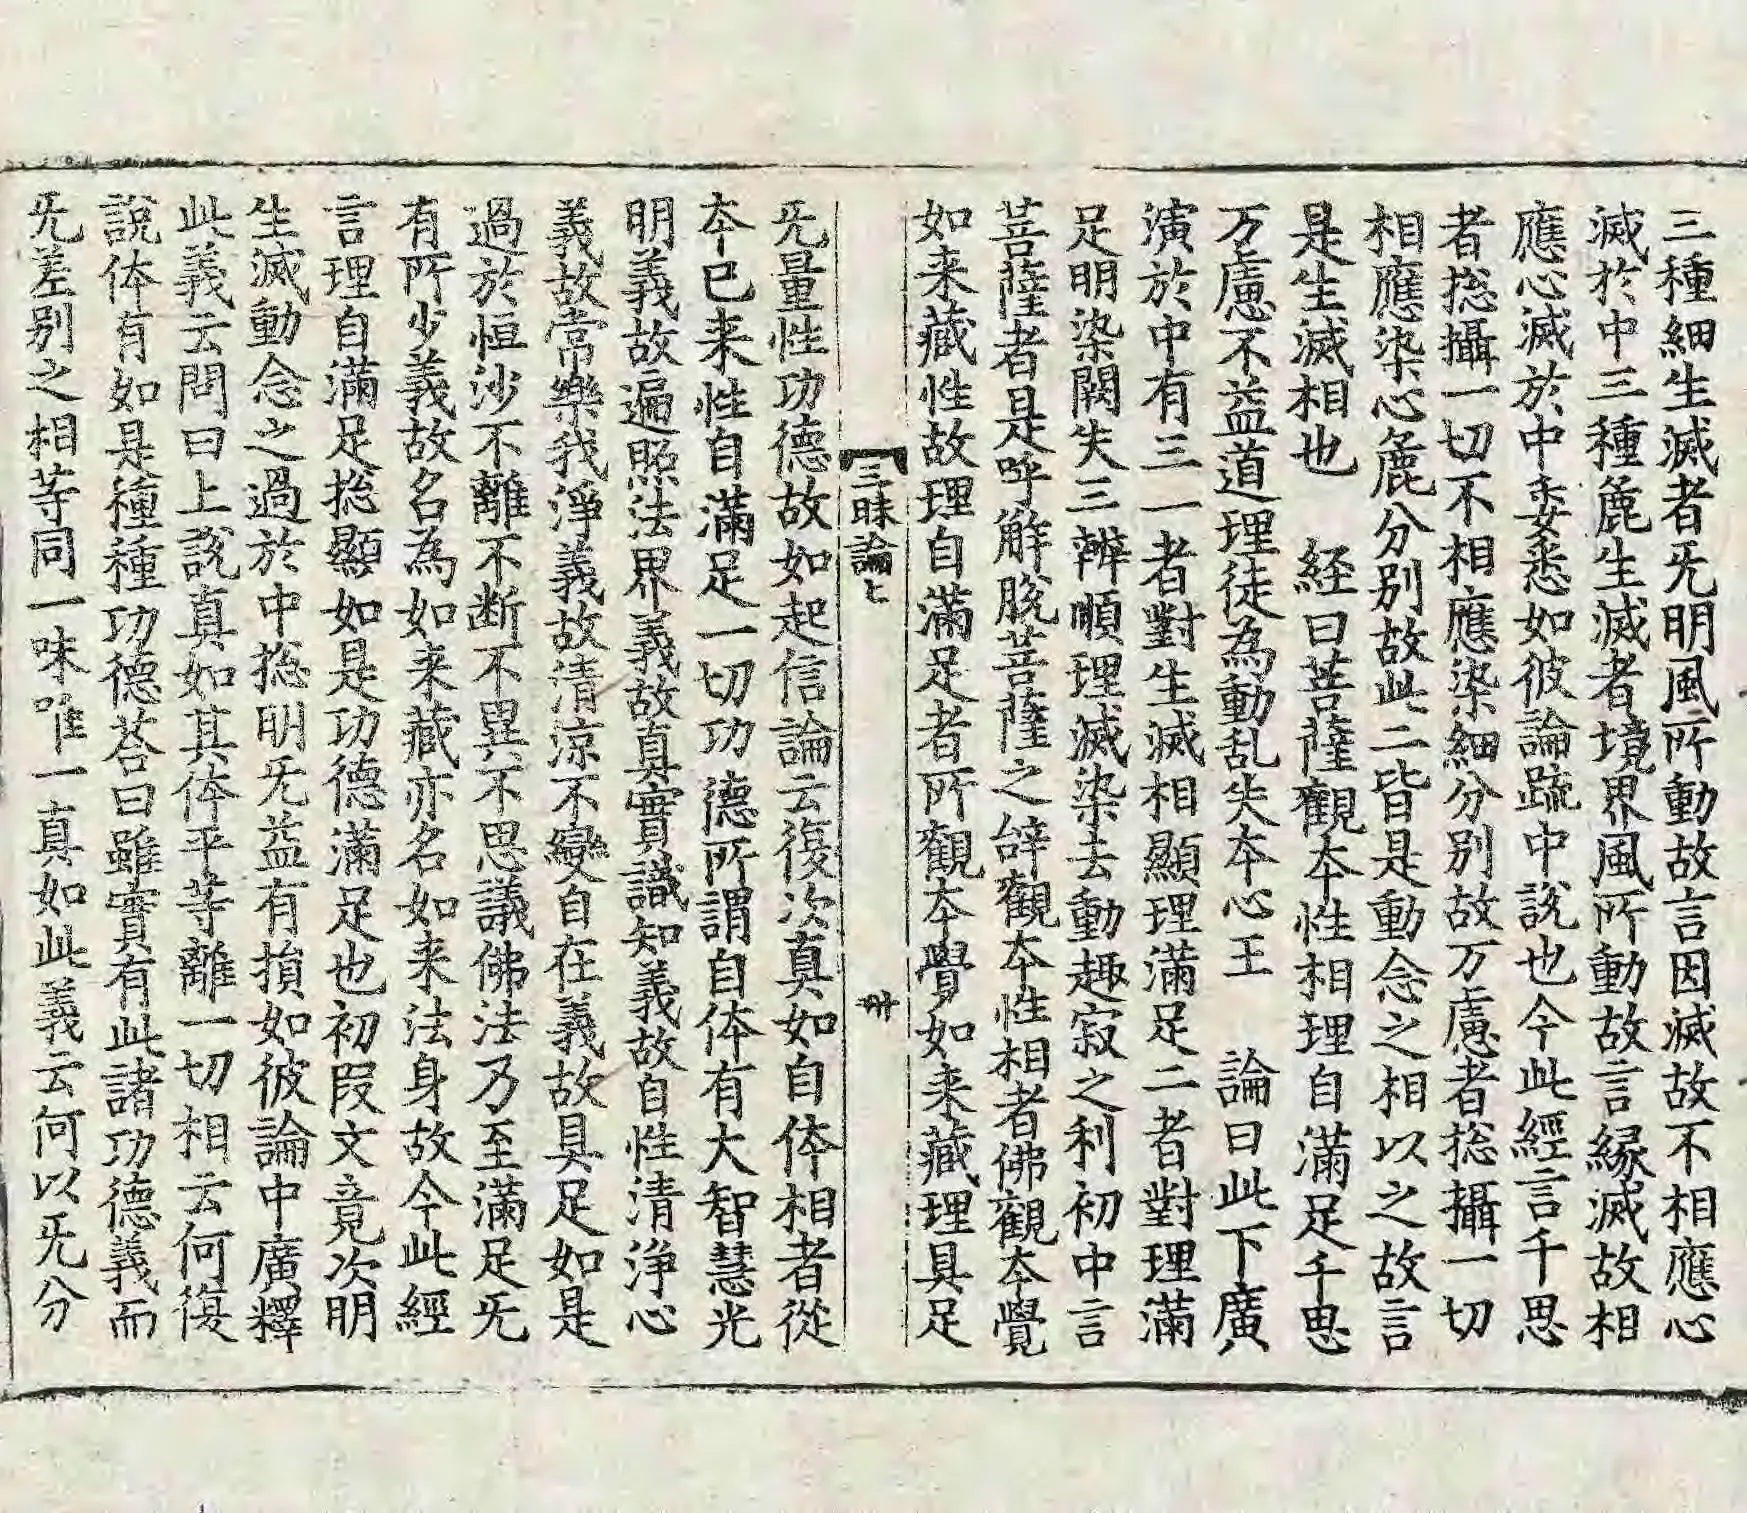 三種細生滅者旡明風所動故言因滅故不相應心
滅於中三種麁生滅者境界風所動故言緣滅故相
應心滅於中委悉如彼論䟽中說也今此經言千思
者捴攝一切不相應染細分別故万慮者捴攝一切
相應染心麁分別故此二皆是動念之相以之故言
是生滅相也　経曰菩薩觀夲性相理自滿足千思
万慮不益道理徒為動乱失夲心王　論曰此下廣
演於中有三一者對生滅相顯理滿足二者對理滿
足明染闕失三辨順理滅染去動趣寂之利初中言
菩薩者是呼解脫菩薩之辞觀夲性相者佛觀夲覺
如来藏性故理自滿足者所觀夲覺如来藏理具足
三昧論上
旡量性功德故如起信論云復次真如自体相者從
夲已来性自滿足一切功德所謂自体有大智慧光
明義故遍照法界義故真實識知義故自性清淨心
義故常樂我淨義故清凉不變自在義故具足如是
過於恒沙不離不断不異不思議佛法乃至滿足旡
有所少義故名為如来藏亦名如来法身故今此經
言理自滿足捴顯如是功德滿足也初叚文竟次明
生滅動念之過於中捴明旡益有損如彼論中廣釋
此義云問曰上說真如其体平等離一切相云何復
說体有如是種種功德荅曰雖實有此諸功德義而
旡差別之相等同一味唯一真如此義云何以旡分